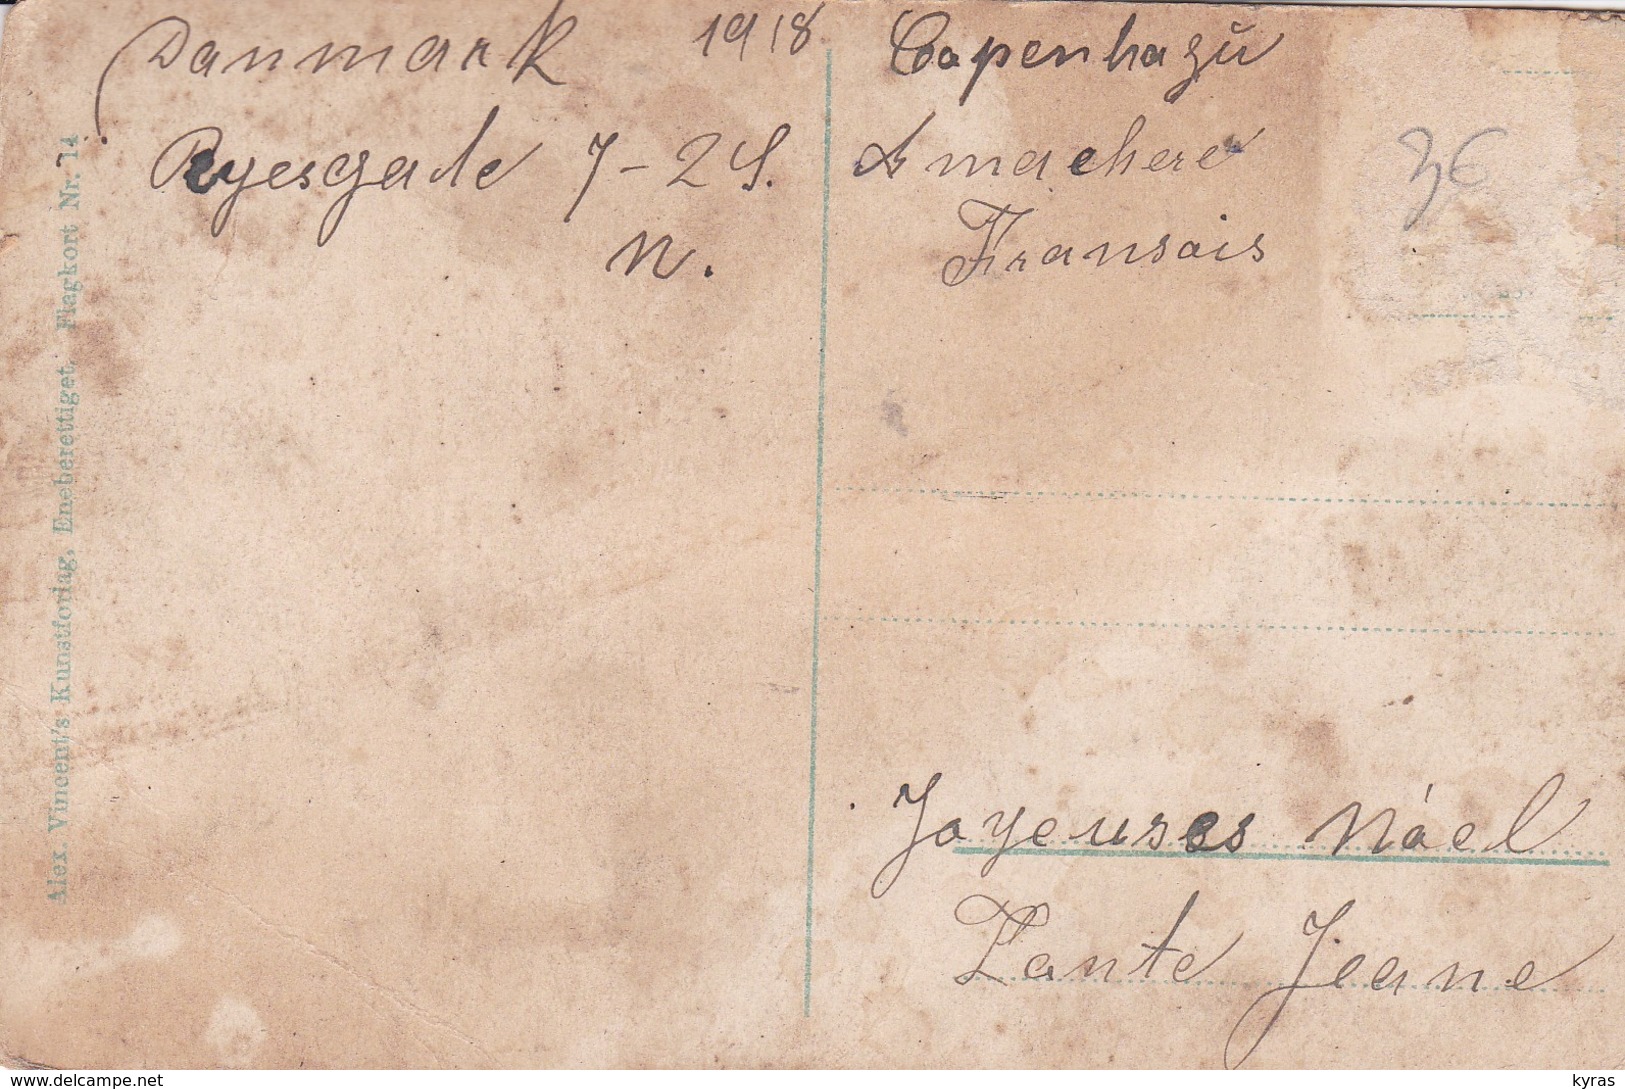 Danmark 1918
Ryesgade 7-2 S.
N.
Copenhagü
A ma chere
Fransois
3€
Joyeuses Nóel
Tante Jeane
Alex. Vincent's Kunstforlag, Eneberettiget, Flagkort Nr. 14
www.delcampe.net
kyras